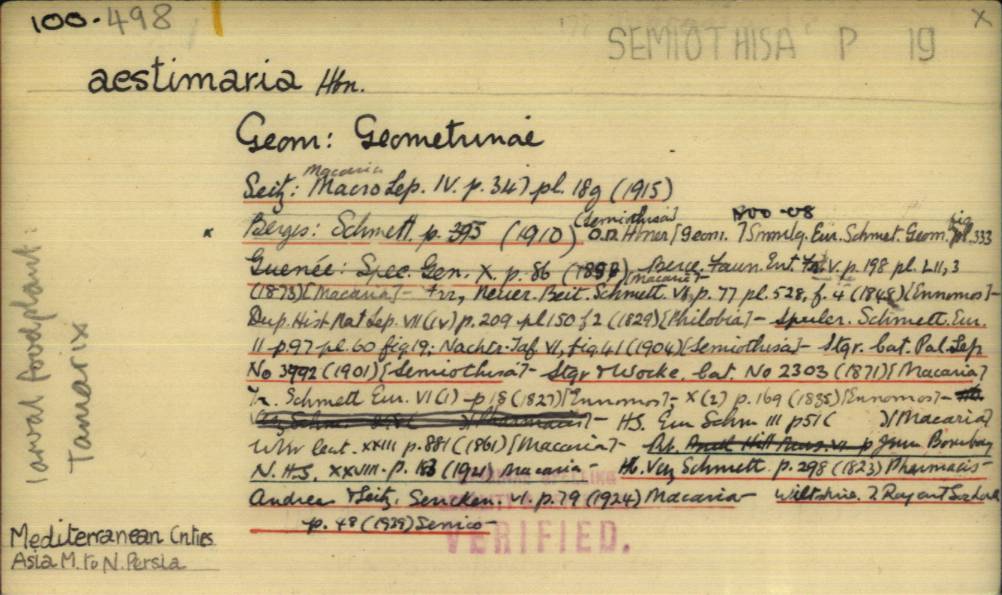 100-498
SEMIOTHISA P 19
X
aestimaria Hbn.
Geom: Geometrinae
Macaria
Seitz: Macro Lep. IV. p. 347 pl. 18g (1915)
[Semiothisa] 1800-08 fig
x Berges: Schmett. p. 395 (1910) O.D. Hbner [Geom. ] Smmlg. Eur. Schmet. Geom. 333
Guenée: Spec. Gen. X. p. 86 [Macaria]- Berce. Faun. Ent. Fr. V. p. 198 pl. LII, 3
(1873) [Macaria]- Frr, Neuer. Beit. Schmett. VI, p. 77 pl. 528, f. 4 (1848) [Ennomos]-
Dup. Hist Nat Lep. VII (IV) p. 209 pl 150 f 2 (1829) [Philobia]- Spuler. Schmett. Eur.
II p. 97 pl. 60 fig 19; Nachtr. Taf VI, fig. 41 (1904) [Semiothisa]- Stgr. Cat. Pal. Lep
No 3992 (1901) [Semiothisa]- Stgr & Wocke. Cat. No 2303 (1871) [Macaria]
Tr. Schmett Eur. VI (1) p 18 (1827) [Ennomos]- X (2) p. 169 (1835) [Ennomos]-
HS. Eur Schm III p 51 ( )[Macaria]
Wkr Cat. XXIII p. 881 (1861) [Macaria]- Journ Bombay
N.H.S. XXVIII. p. (1921) Macaria - Hb. Verz Schmett. p. 298 (1823) Pharmacis-
Andres & Seitz. Sencken. VI. p. 79 (1924) Macaria- Wiltshire.
p. 48 (1929) Semio-
larval foodplant:
Tamarix
Mediterranean Cnties
Asia M. to N. Persia
VERIFIED.